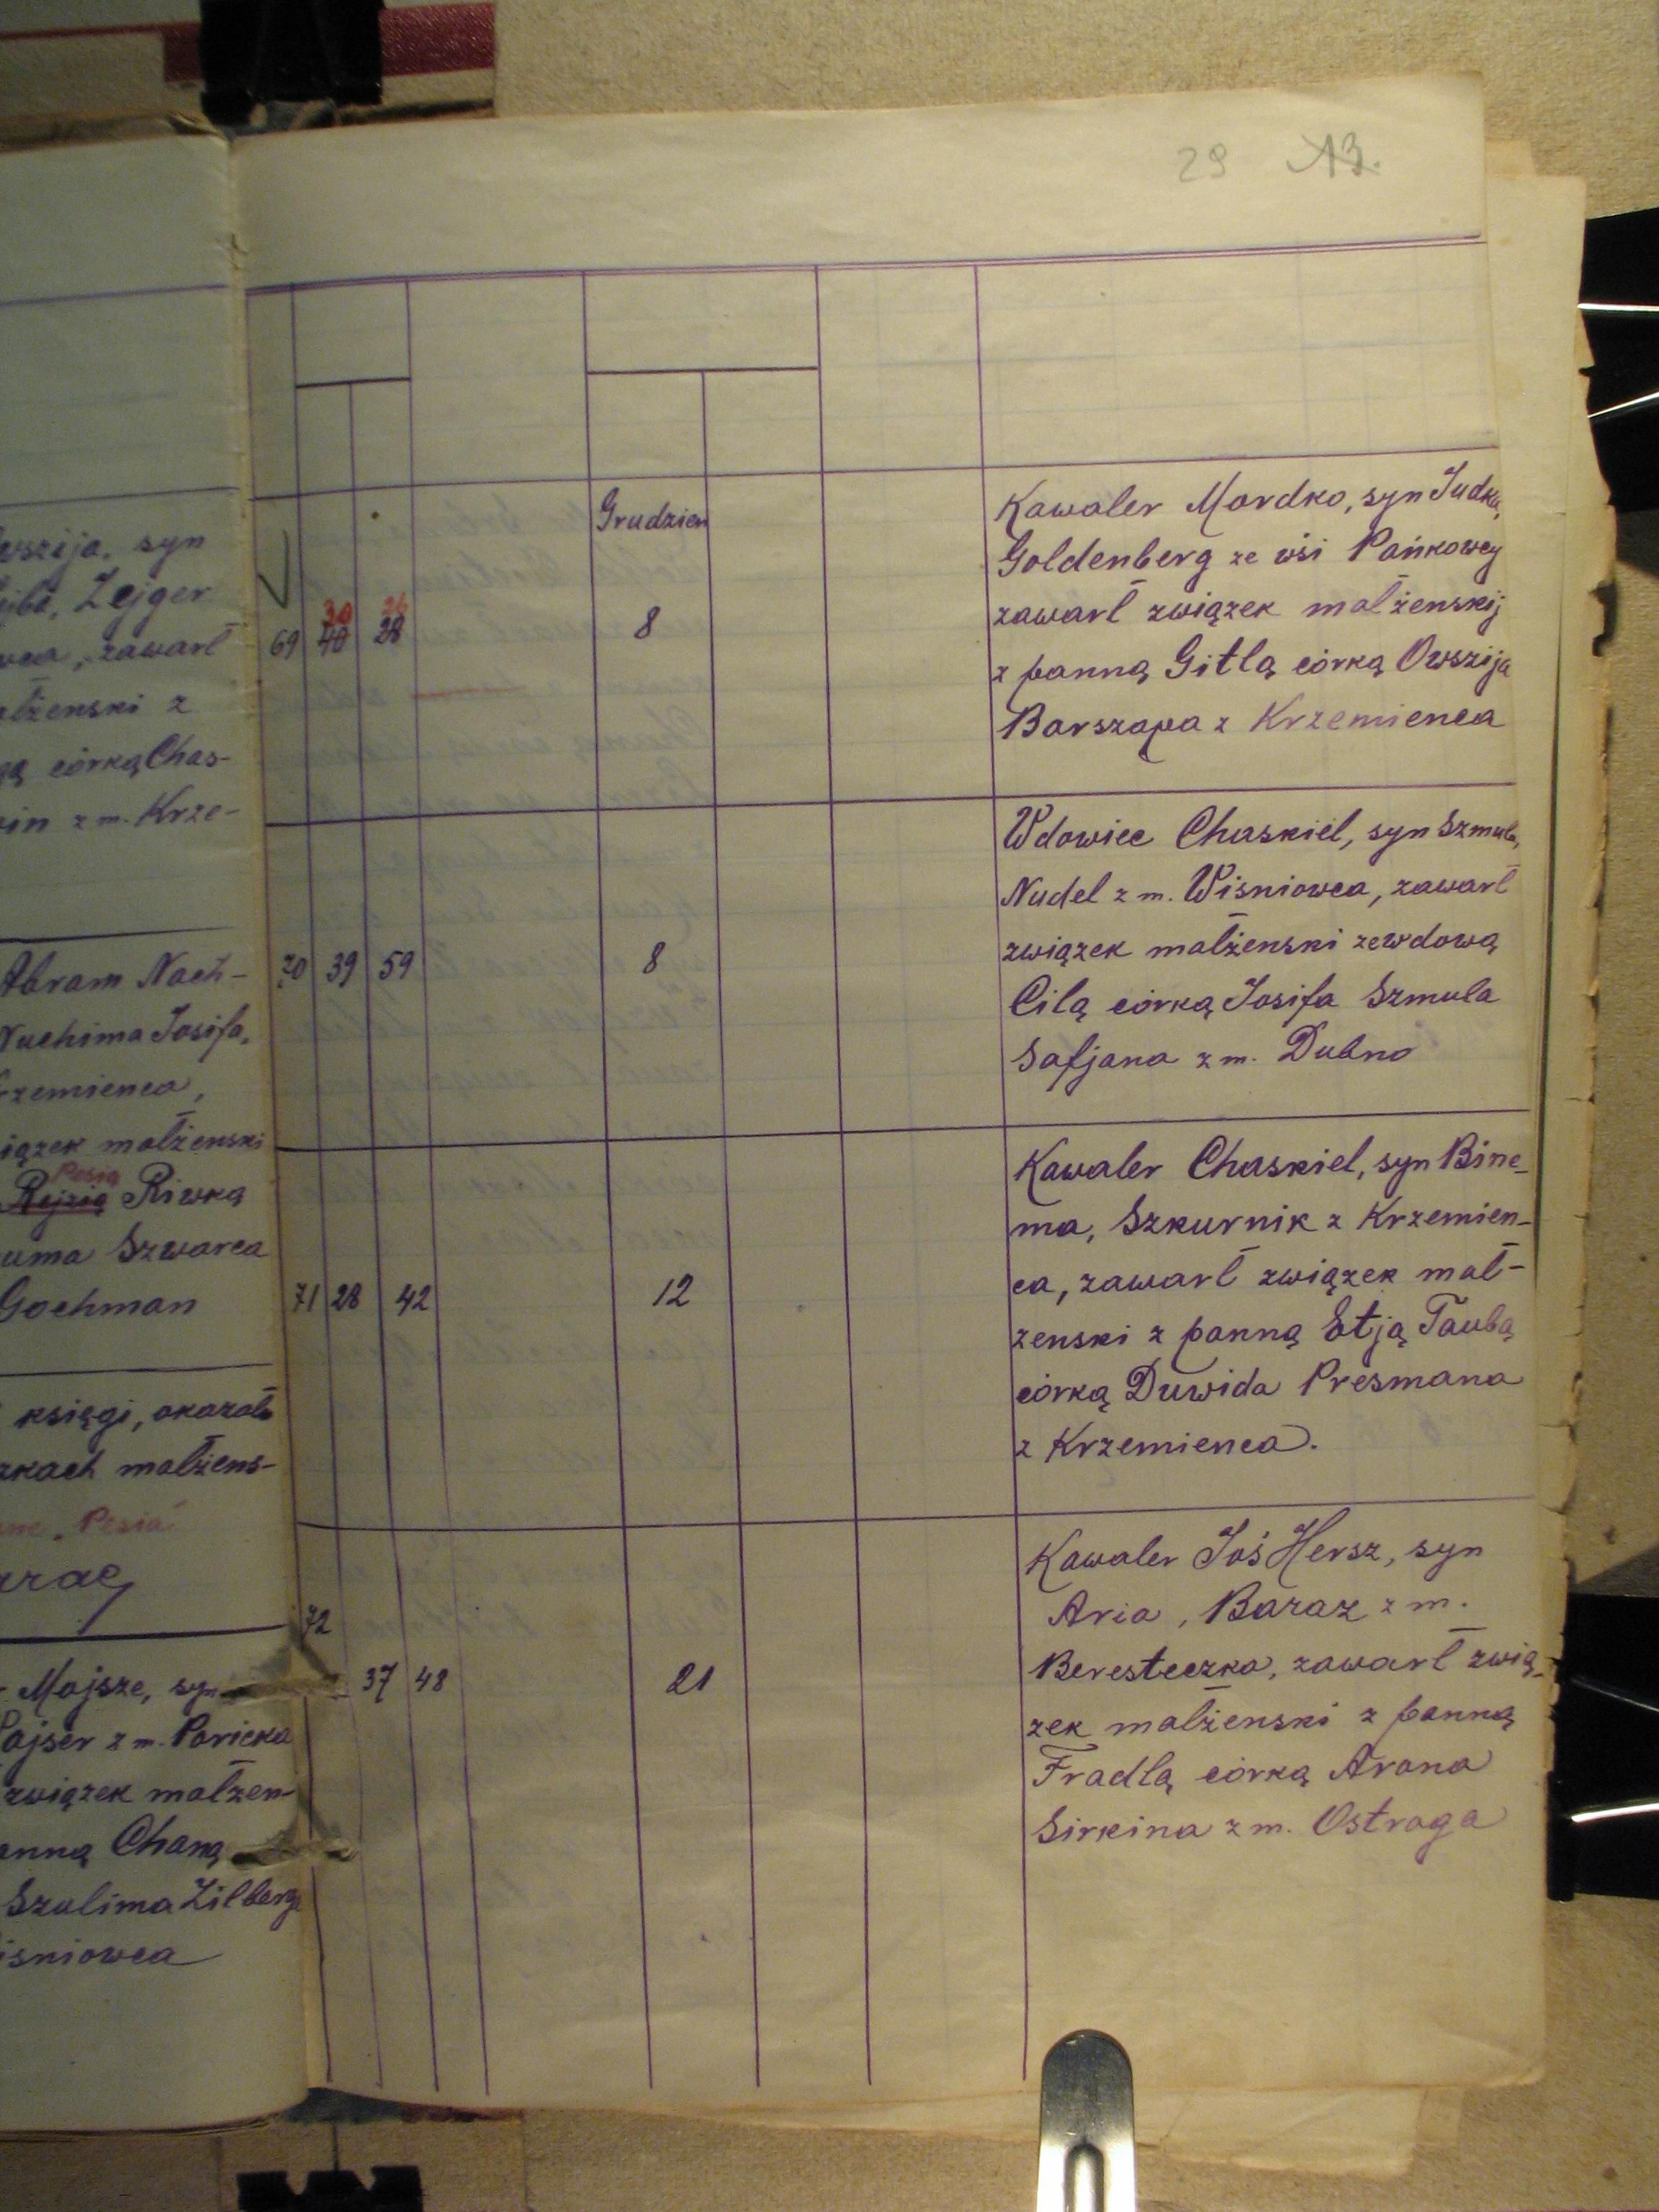 29 13.
wszija, syn
ejba, Zejger
wca, zawarł
ałżenski z
ną córką Chas-
win z m. Krze-
Abram Nach-
Nuchima Josifa,
rzemienca,
iązek małżenski
Pesią
Rejzią Riwką
uma Szwarca
Gochman
księgi, okazało
zkach małżens-
"Pesia"
Majsze, syn
Pajser z m. Paricka
związek małżen-
anną Chaną
Szulima Zilberg
iśniowca
Grudzien
30 26
69 40 28 8
Kawaler Mordko, syn Judka,
Goldenberg ze wśi Pańkowcy
zawarł związek małżenskij
z panną Gitlą córką Owszija
Barszapa z Krzemienca
70 39 59 8
Wdowiec Chaskiel, syn Szmula,
Nudel z m. Wiśniowca, zawarł
związek małżenski ze wdową
Cilą córką Josifa Szmula
Safjana z m. Dubno
71 28 42 12
Kawaler Chaskiel, syn Bine-
ma, Szkurnik z Krzemien-
ca, zawarł związek mał-
zenski z panną Etją Taubą
córką Duwida Presmana
z Krzemienca.
72
37 48 21
Kawaler Joś Hersz, syn
Aria, Baraz z m.
Beresteczka, zawarł zwią-
zek małżenski z panną
Fradlą córką Arona
Sirkina z m. Ostroga